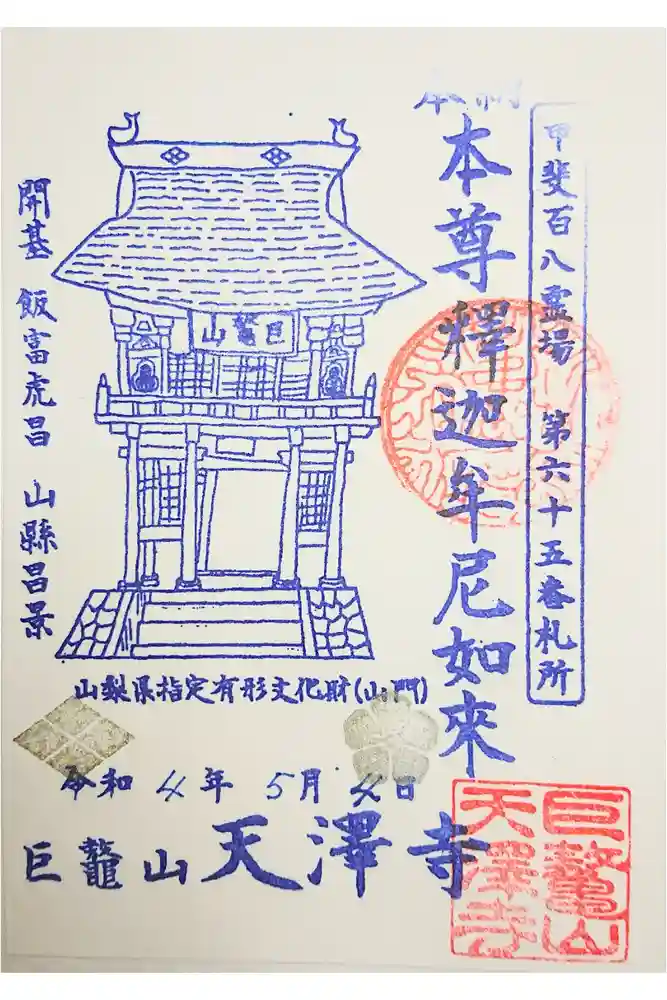 甲斐百八霊場 第六十五番札所
奉納
本尊釋迦牟尼如來
巨鼇山
開基 飯富虎昌 山縣昌景
山梨県指定有形文化財(山門)
令和4年5月4日
巨鼇山天澤寺
巨鼇山
天澤寺